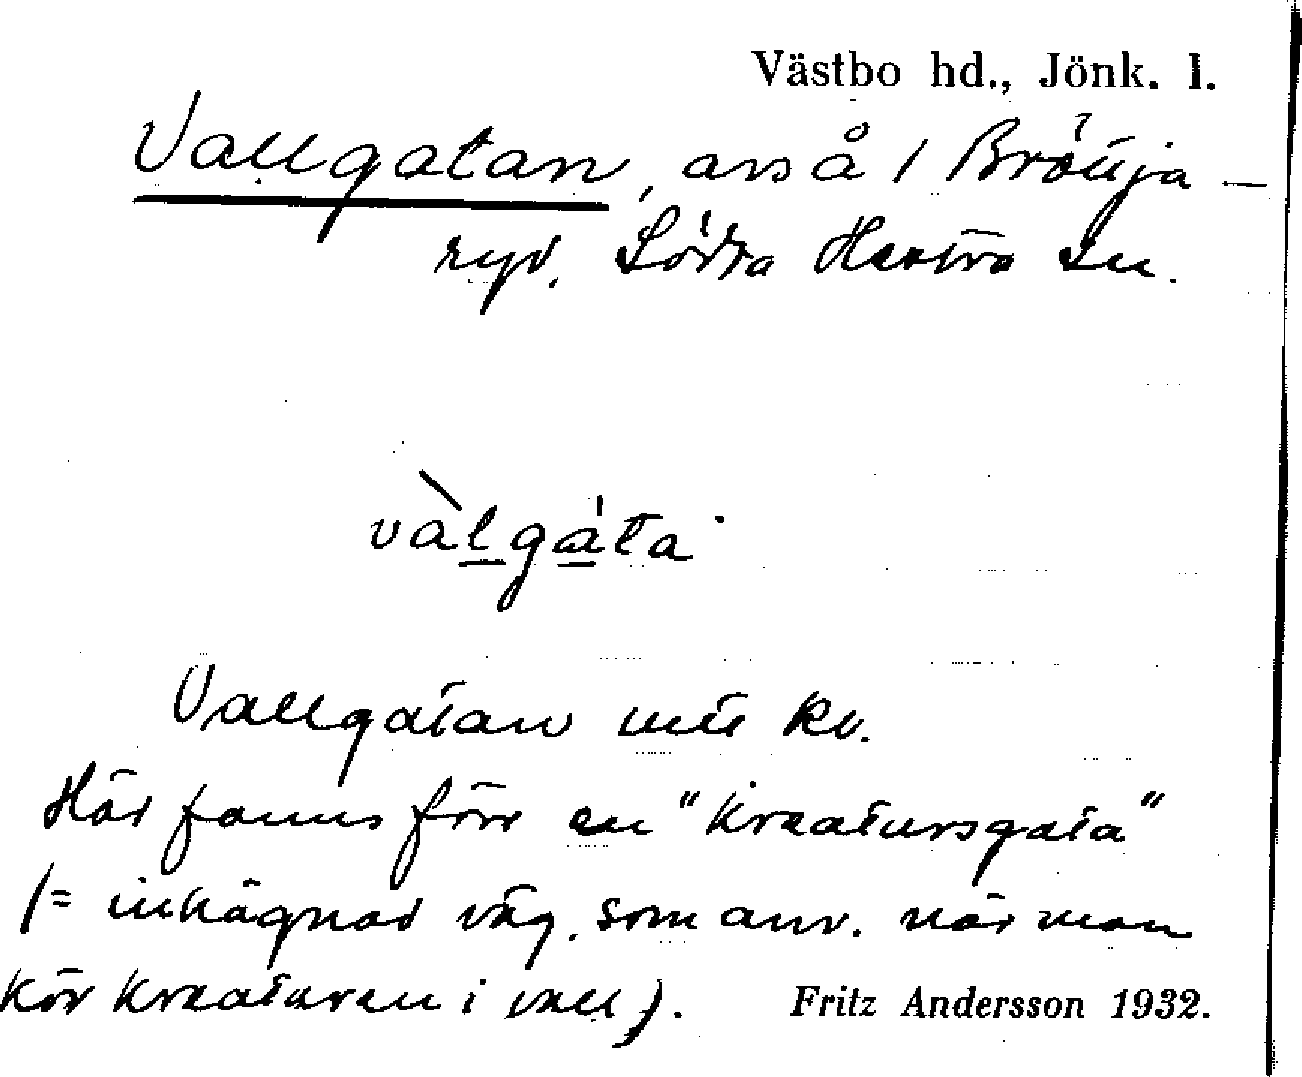 Västbo hd., Jönk. l.
Vallgatan, avs å i Brötja-
ryd, Södra Hestra sn.
vàlgáta
Vallgatan mtr kv.
Här fanns förr en "kreatursgata"
(= inhägnad väg, som anv. när man
kör kreaturen i vall). Fritz Andersson 1932.